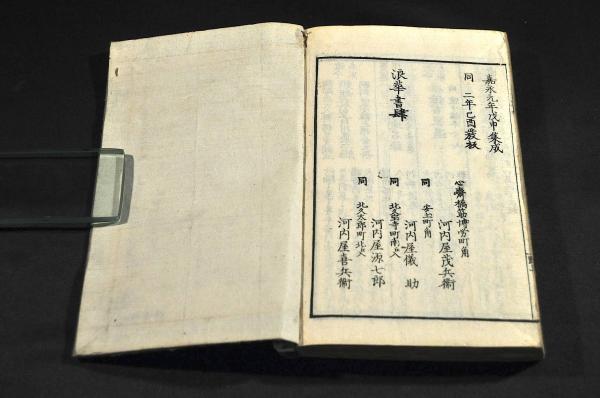 嘉永元年戊申集成
同 二年己酉發販
浪華書肆
心齋橋筋博労町角
河内屋茂兵衛
同 安土町角
河内屋儀助
同 北久宝寺町南ヘ入
河内屋源七郎
同 北久太郎町北ヘ入
河内屋喜兵衛